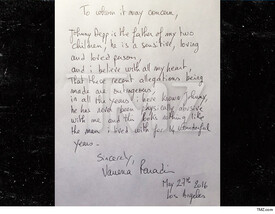 To whom it may concern,
Johnny Depp is the father of my two
children, he is a sensitive, loving
and loved person,
and i believe with all my heart,
that these recent allegations being
made are outrageous,
in all the years i have known Johnny,
he has never been physically abusive
with me and this looks nothing like
the man i lived with for 14 wonderful
years.
Sincerely,
Vanessa Paradis
May 27th 2016
Los Angeles
TMZ.com